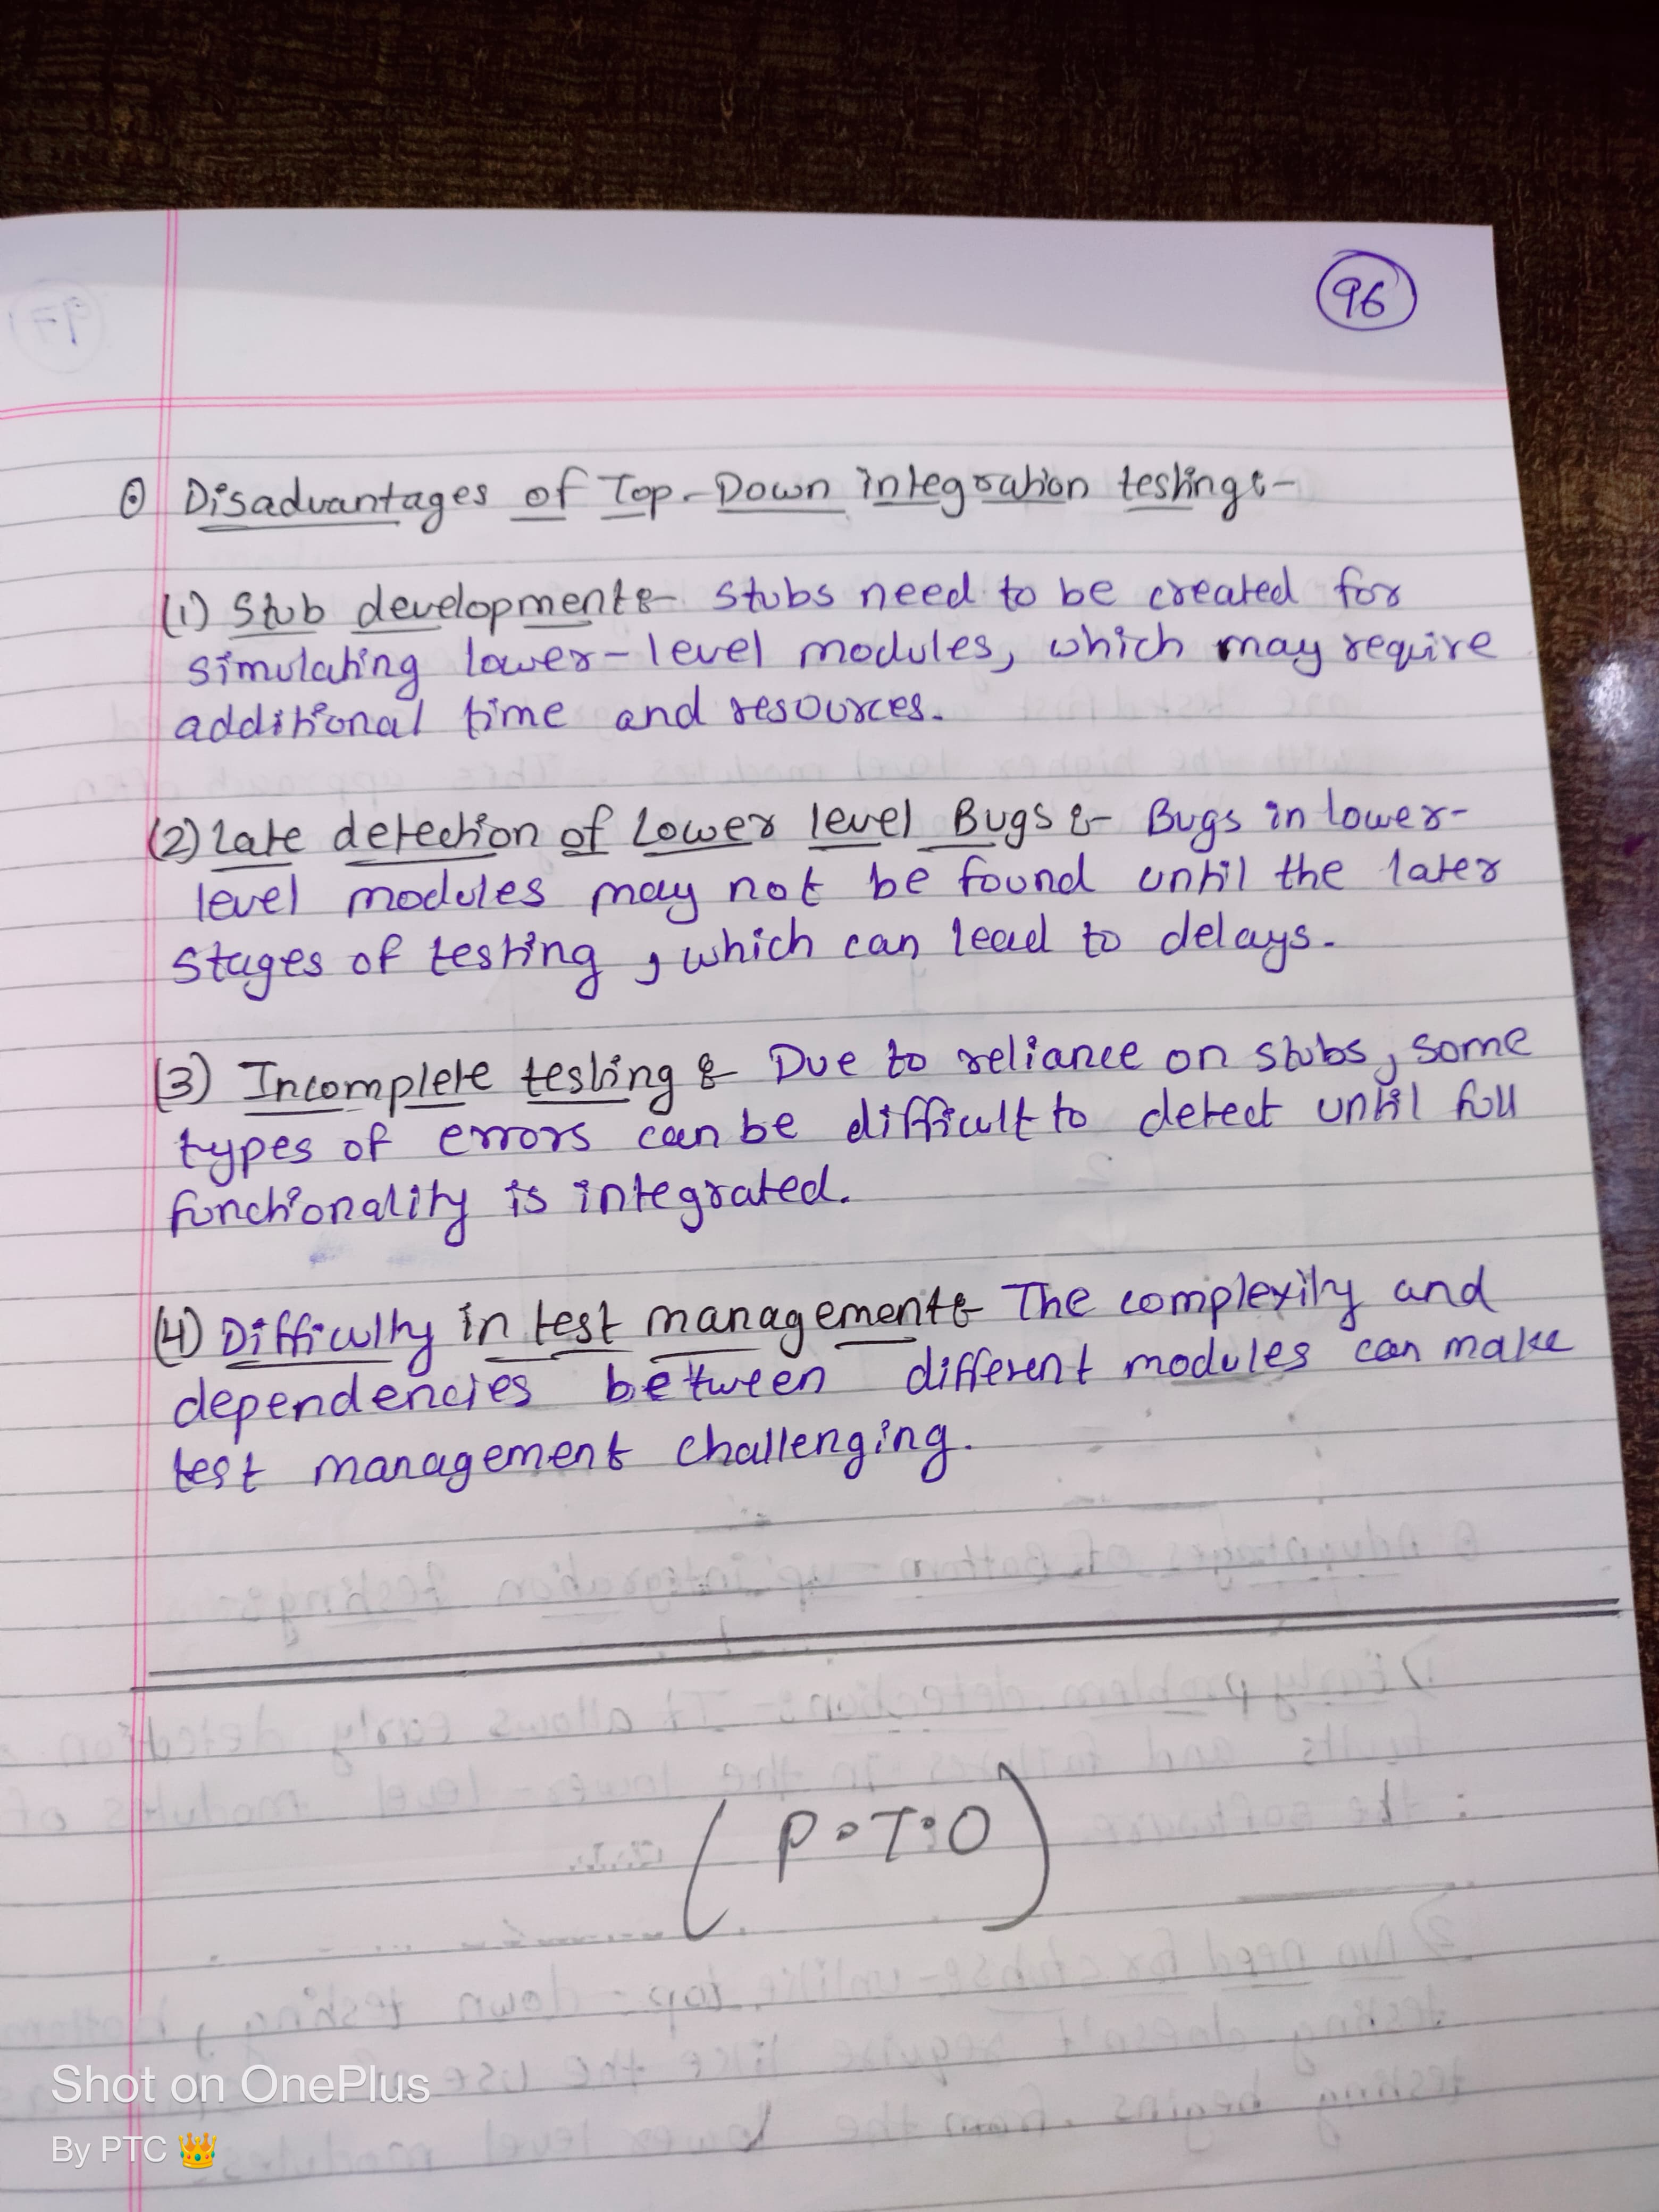 96
Disadvantages of Top-Down integration testing:-
(1) Stub development:- Stubs need to be created for
simulating lower-level modules, which may require
additional time and resources.
(2) Late detection of Lower level Bugs:- Bugs in lower-
level modules may not be found until the later
stages of testing, which can lead to delays.
(3) Incomplete testing:- Due to reliance on stubs, some
types of errors can be difficult to detect until full
functionality is integrated.
(4) Difficulty in test management:- The complexity and
dependencies between different modules can make
test management challenging.
(P.T.O)
Shot on OnePlus
By PTC 👑